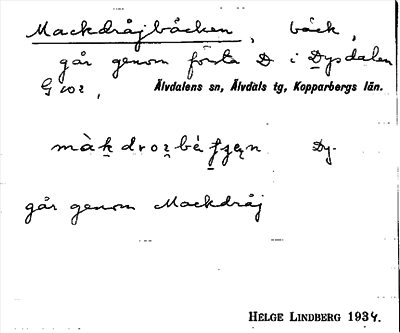 Mackdråjbäcken, bäck,
går genom första D i Dysdalen
G 102, Älvdalens sn, Älvdals tg, Kopparbergs län.
Dy.
går genom Mackdråj
HELGE LINDBERG 1934.